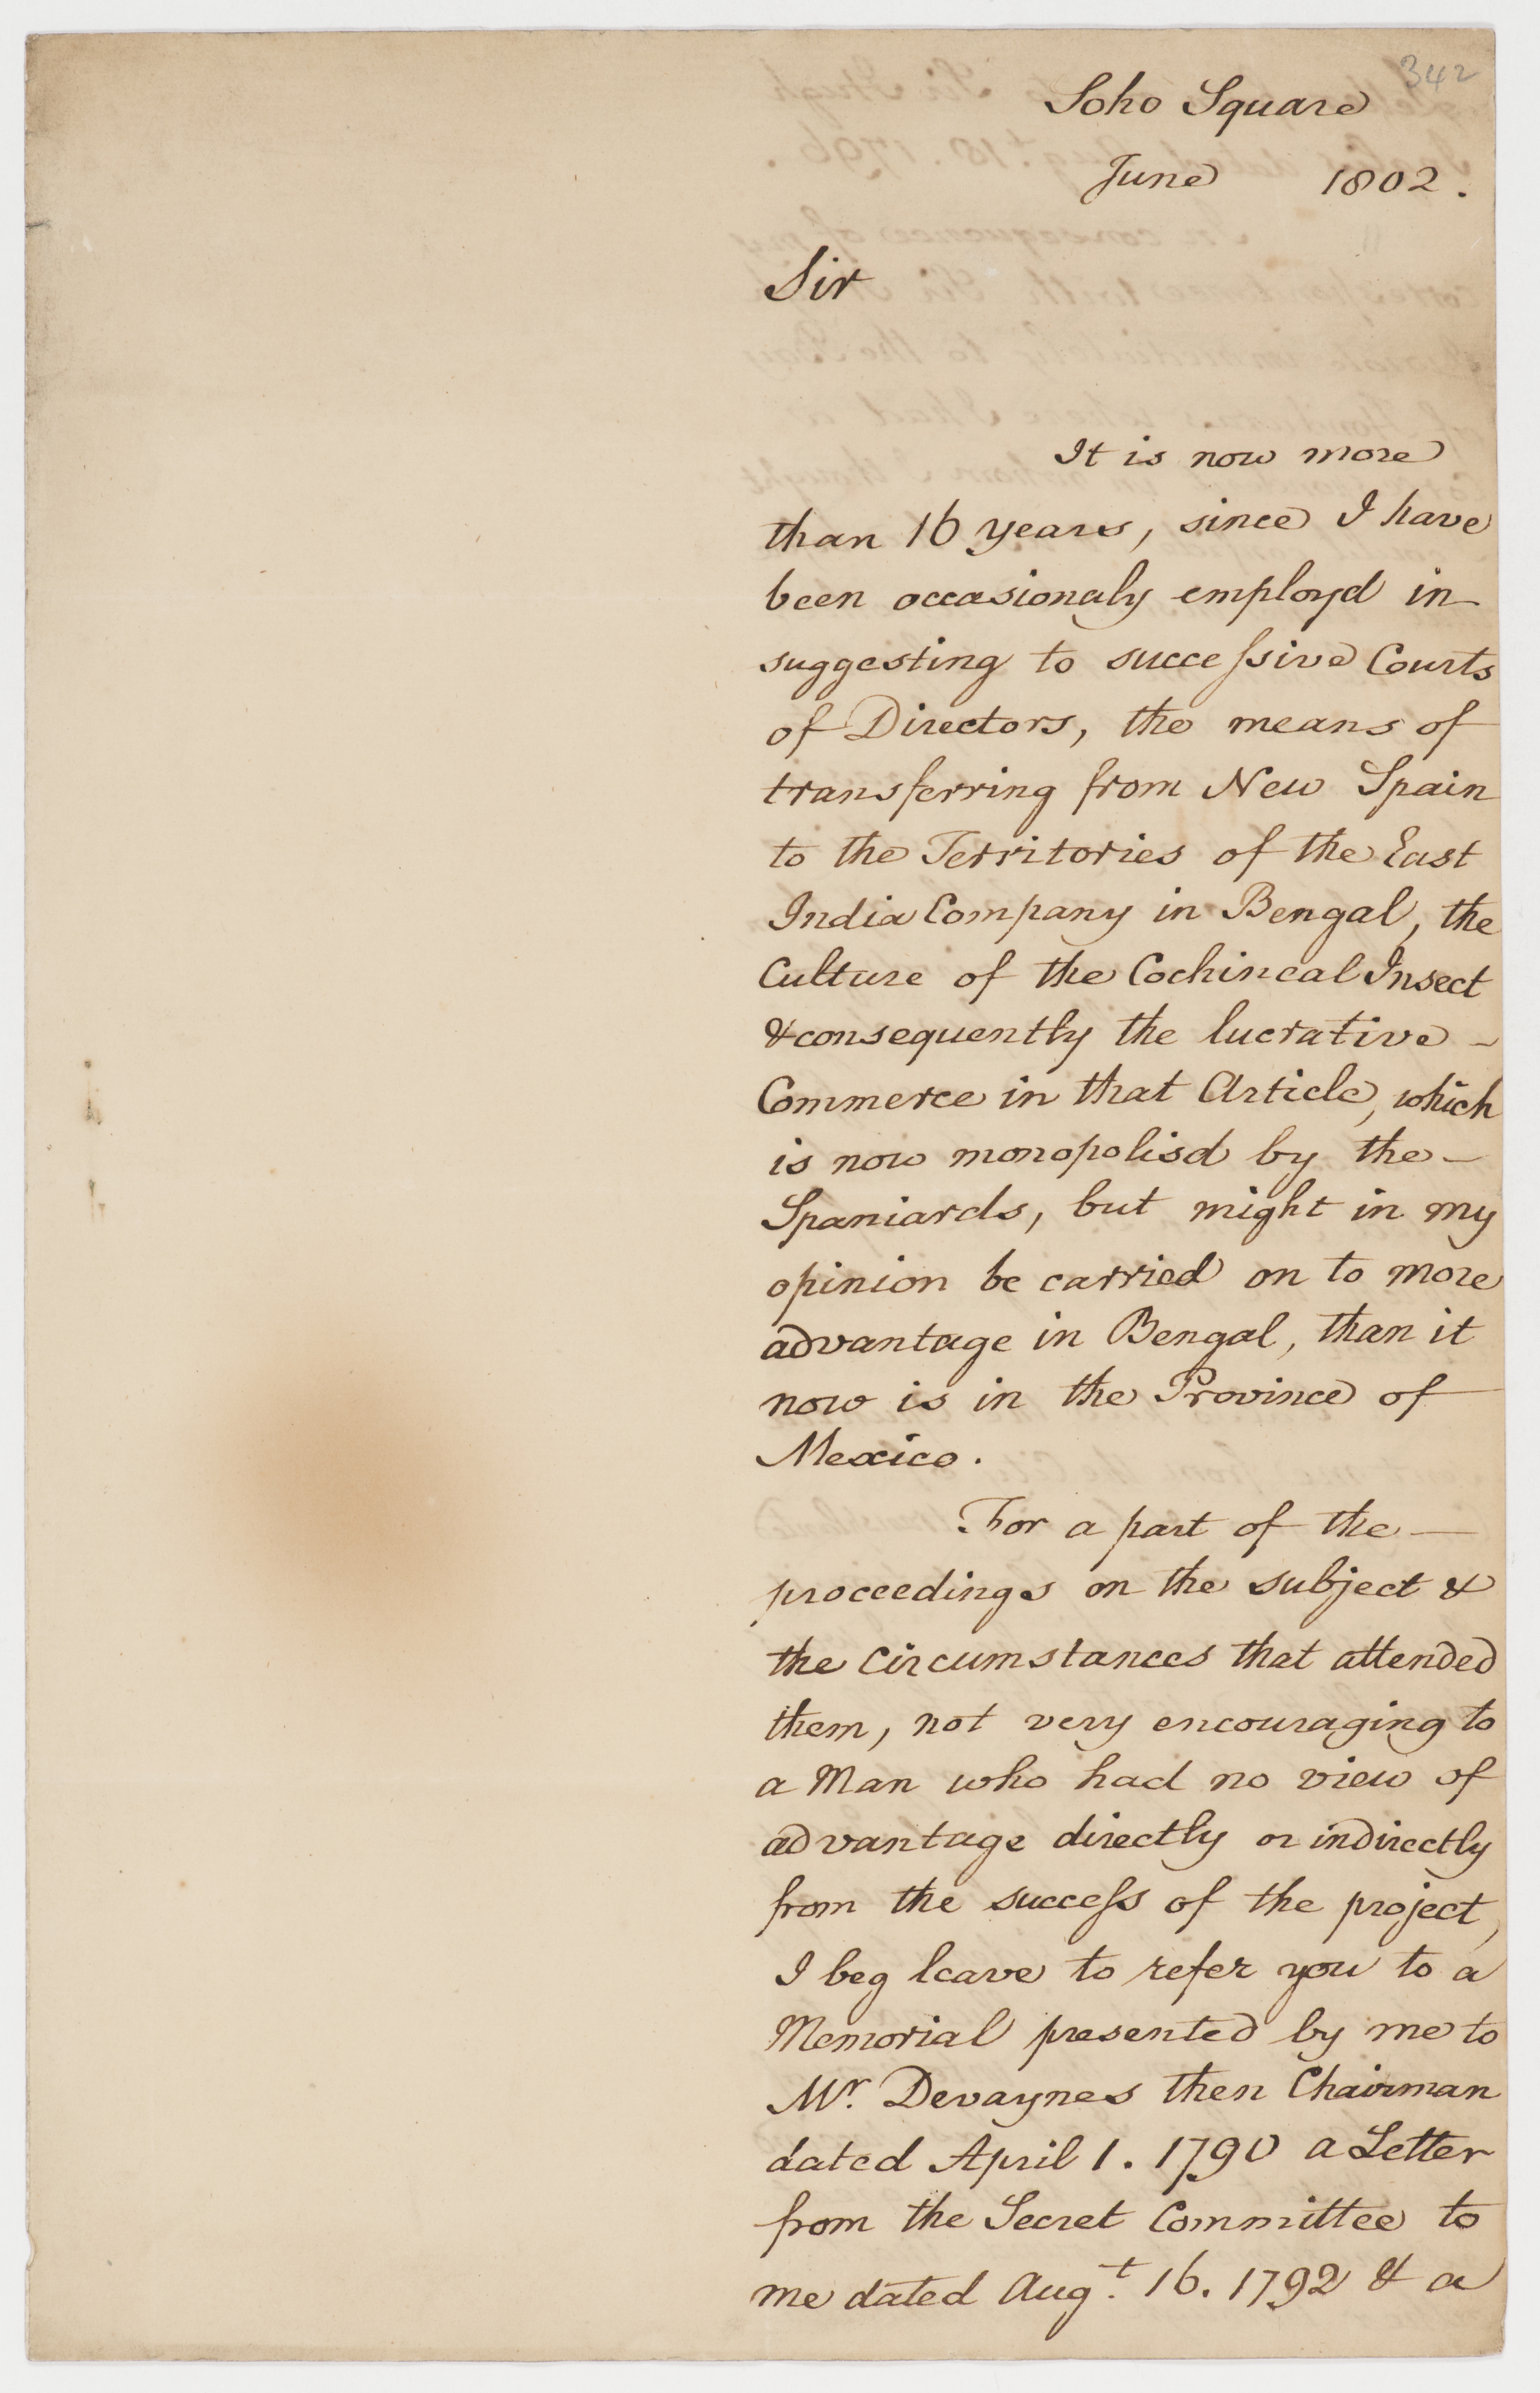 342
Soho Square
June 1802.
Sir
It is now more
than 16 years, since I have
been occasionaly employd in
suggesting to successive Courts
of Directors, the means of
transferring from New Spain
to the Territories of the East
India Company in Bengal, the
Culture of the Cochineal Insect
& consequently the lucrative -
Commerce in that Article, which
is now monopolisd by the -
Spaniards, but might in my
opinion be carried on to more
advantage in Bengal, than it
now is in the Province of
Mexico.
For a part of the -
proceedings on the subject &
the Circumstances that attended
them, not very encouraging to
a Man who had no view of
advantage directly or indirectly
from the success of the project,
I beg leave to refer you to a
Memorial presented by me to
Mr. Devaynes then Chairman
dated April 1. 1790 a Letter
from the Secret Committee to
me dated Augt. 16. 1792 & a